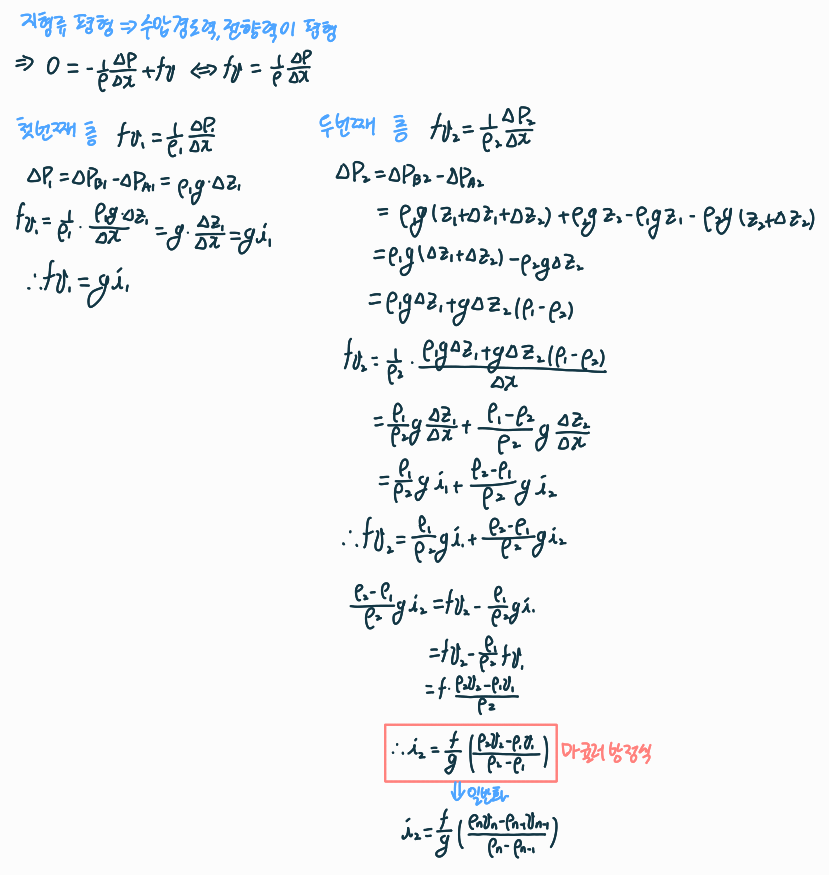 지형류 평형 ⇒ 수압경도력, 전향력이 평형
⇒ 0 = -1/ρ ΔP/Δx + fv ⇔ fv = 1/ρ ΔP/Δx
첫번째 층 fv₁ = 1/ρ₁ ΔP₁/Δx
ΔP₁ = ΔP_B1 - ΔP_A1 = ρ₁g·Δz₁
fv₁ = 1/ρ₁ · ρ₁g·Δz₁/Δx = g·Δz₁/Δx = gi₁
∴ fv₁ = gi₁
두번째 층 fv₂ = 1/ρ₂ ΔP₂/Δx
ΔP₂ = ΔP_B2 - ΔP_A2
= ρ₁g(z₁+Δz₁+Δz₂) + ρ₂gz₂ - ρ₁gz₁ - ρ₂g(z₂+Δz₂)
= ρ₁g(Δz₁+Δz₂) - ρ₂gΔz₂
= ρ₁gΔz₁ + gΔz₂(ρ₁-ρ₂)
fv₂ = 1/ρ₂ · (ρ₁gΔz₁ + gΔz₂(ρ₁-ρ₂))/Δx
= ρ₁/ρ₂ g Δz₁/Δx + (ρ₁-ρ₂)/ρ₂ g Δz₂/Δx
= ρ₁/ρ₂ g i₁ + (ρ₂-ρ₁)/ρ₂ g i₂
∴ fv₂ = ρ₁/ρ₂ gi₁ + (ρ₂-ρ₁)/ρ₂ gi₂
(ρ₂-ρ₁)/ρ₂ gi₂ = fv₂ - ρ₁/ρ₂ gi₁
= fv₂ - ρ₁/ρ₂ fv₁
= f·(ρ₂v₂-ρ₁v₁)/ρ₂
∴ i₂ = f/g ((ρ₂v₂-ρ₁v₁)/(ρ₂-ρ₁)) 마굴러 방정식
⇓ 일반화
i₂ = f/g ((ρₙvₙ-ρₙ₋₁vₙ₋₁)/(ρₙ-ρₙ₋₁))